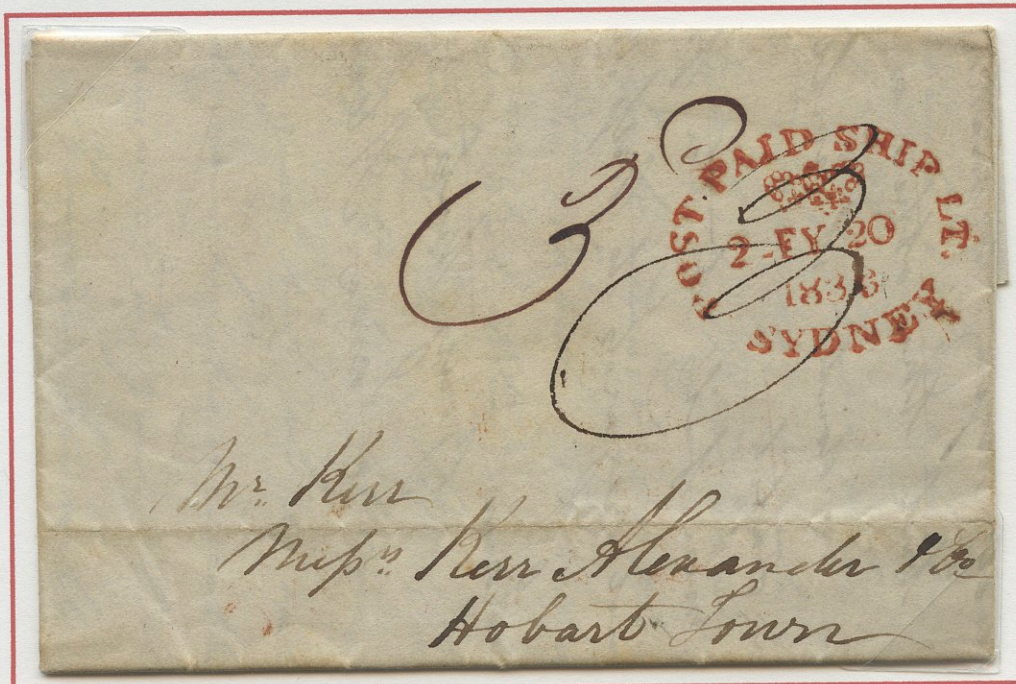 3
3
POST PAID SHIP LT.
2-FY 20
SYDNEY
Mr. Kerr
Messrs. Kerr Alexander & Co
Hobart Town